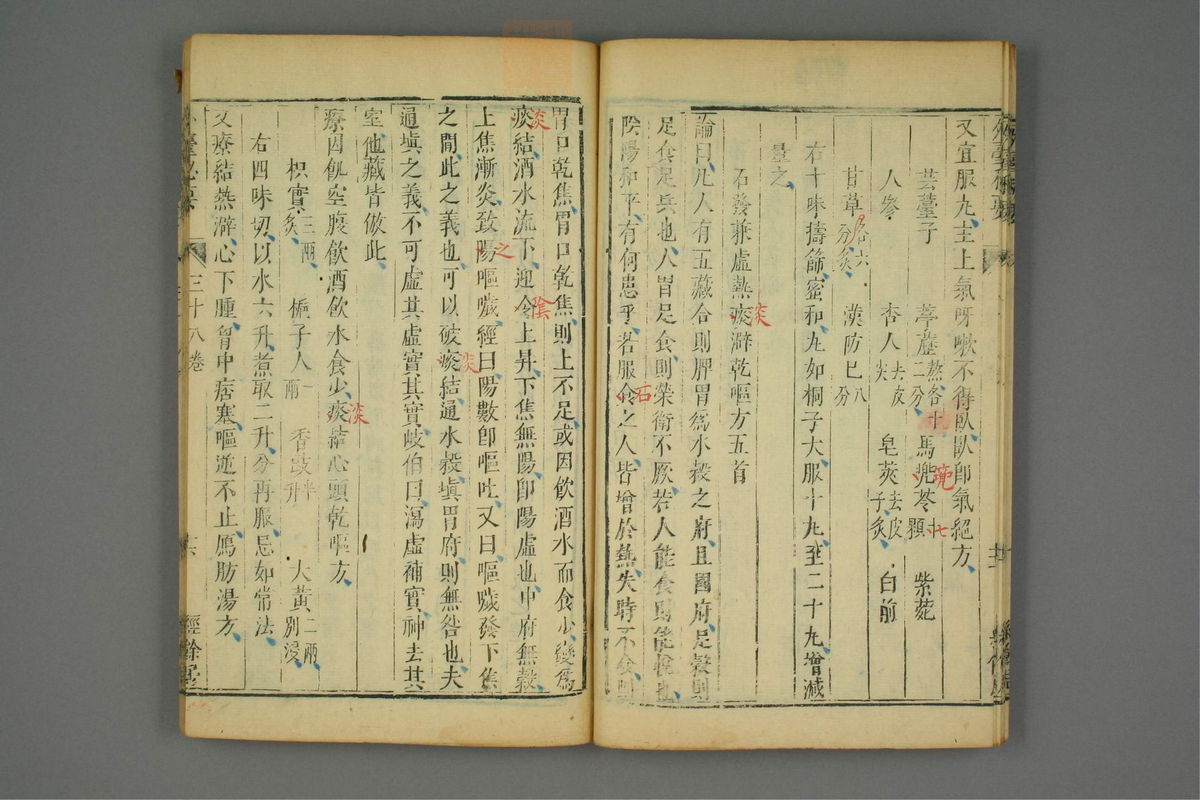 又宜服丸主上氣呀嗽不得臥臥即氣絕方
芸薹子 葶藶熬各十二分 馬兜苓七顆 紫菀
人參 杏人去皮尖 皂莢去皮子炙 白前
甘草炙各六分 漢防巳八分
右十味擣篩蜜和丸如桐子大服十丸至二十丸增減
量之
石發兼虛熱痰澼乾嘔方五首
論曰凡人有五藏合則脾胃爲水穀之府且國府足穀則
足食足兵也人胃足食則榮衛不厥若人能食
陰陽和平有何患乎若服令之人皆增於熱失時不食則
胃口乾焦胃口乾焦則上不足或因飲酒水而食少變爲
痰結酒水流下迎令上昇下焦無陽即陽虛也中府無穀
上焦漸炎致陽嘔噦經曰陽數即嘔吐又曰嘔噦發下焦
之間此之義也可以破痰結通水穀塡胃府則無咎也夫
通塡之義不可虛其虛實其實岐伯曰瀉虛補實神去其
室他藏皆倣此
療因飢空腹飲酒飲水食少痰結心頭乾嘔方
枳實三兩炙 梔子人一兩 香豉半升 大黃二兩別浸
右四味切以水六升煮取二升分再服忌如常法
又療結熱澼心下腫胷中痞塞嘔逆不止鴈肪湯方
外臺秘要
三十八卷
經餘居
淡
陰
之
淡
淡
淡
石
兜
七